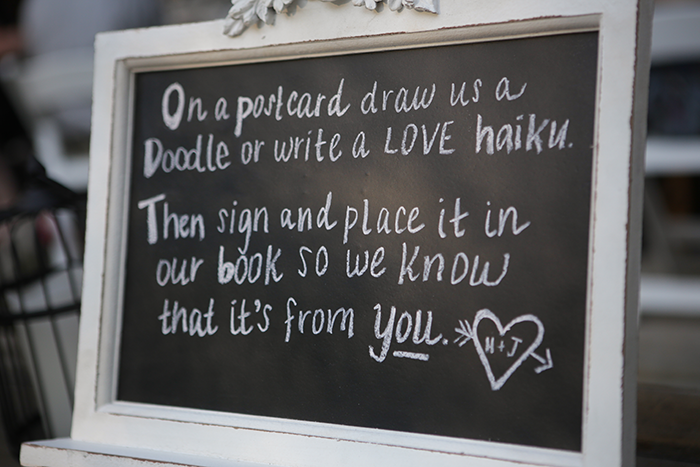 On a postcard draw us a
Doodle or write a LOVE haiku.
Then sign and place it in
our book so we know
that it's from you.
H + J